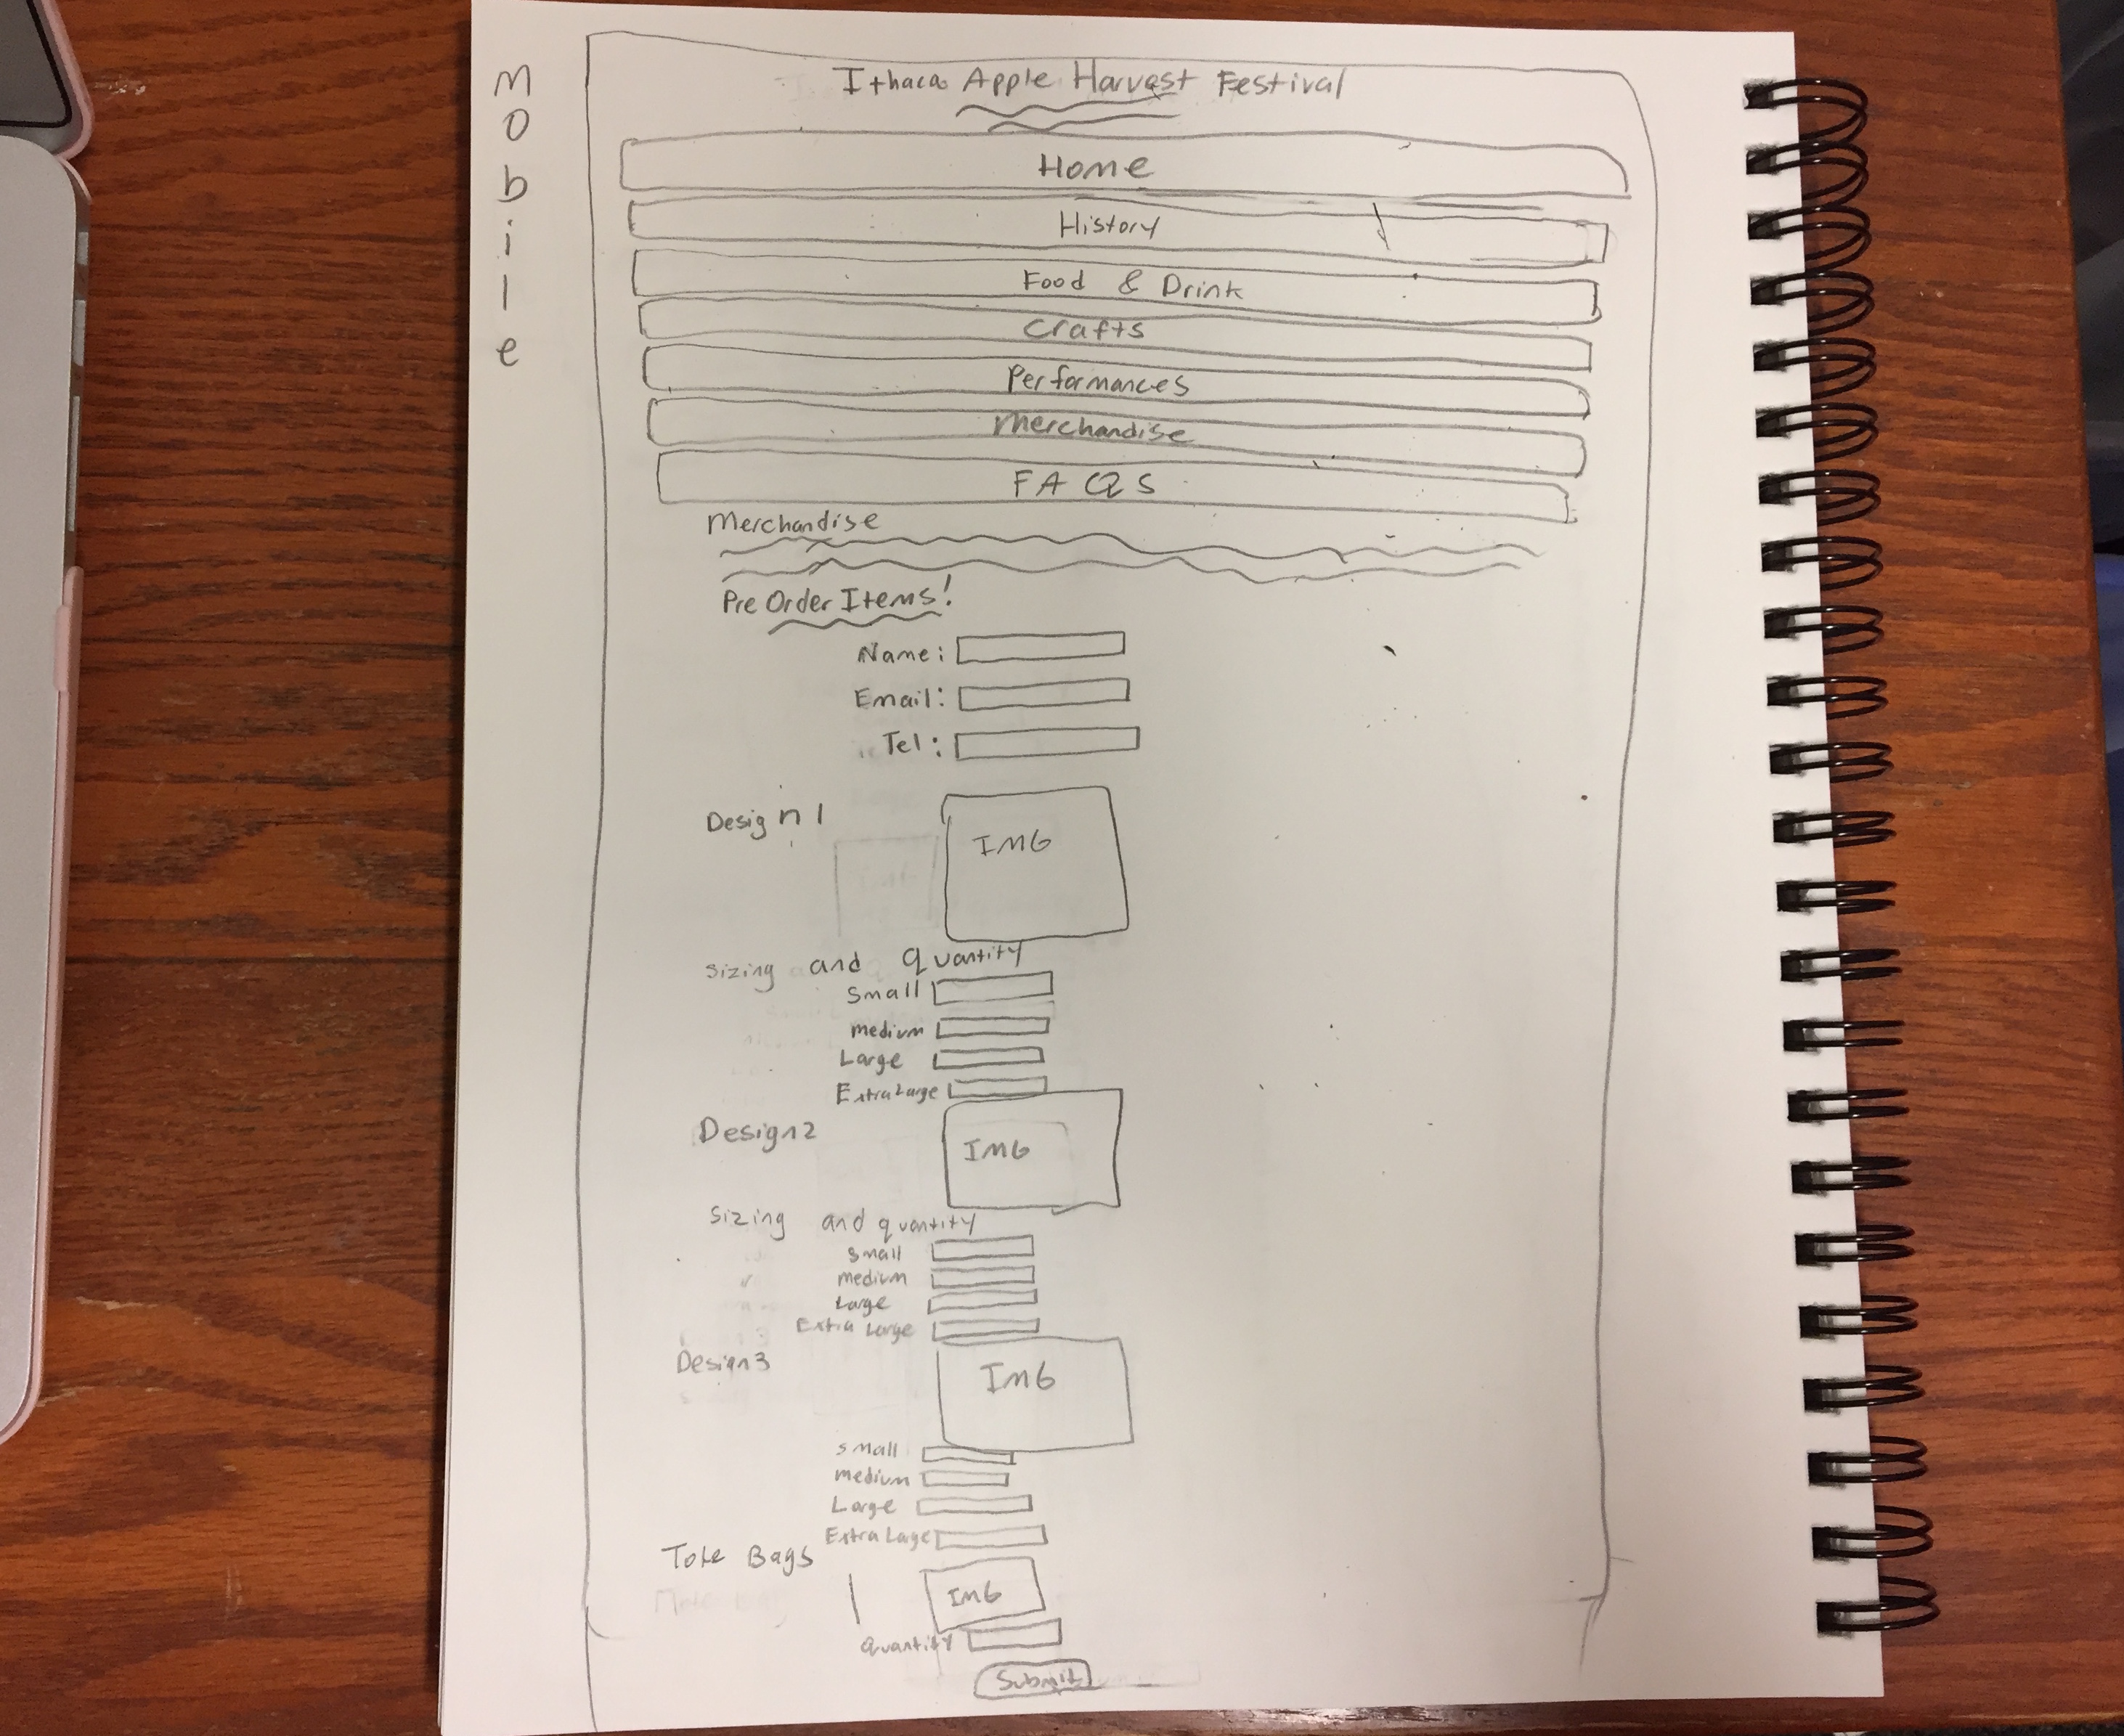 Mobile
Ithaca Apple Harvest Festival
Home
History
Food & Drink
Crafts
Performances
Merchandise
FAQS
Merchandise
Pre Order Items!
Name:
Email:
Tel:
Design 1
IMG
Sizing and quantity
Small
medium
Large
Extra Large
Design 2
IMG
Sizing and quantity
small
medium
Large
Extra Large
Design 3
IMG
small
medium
Large
Extra Lage
Tote Bags
IMG
quantity
Submit